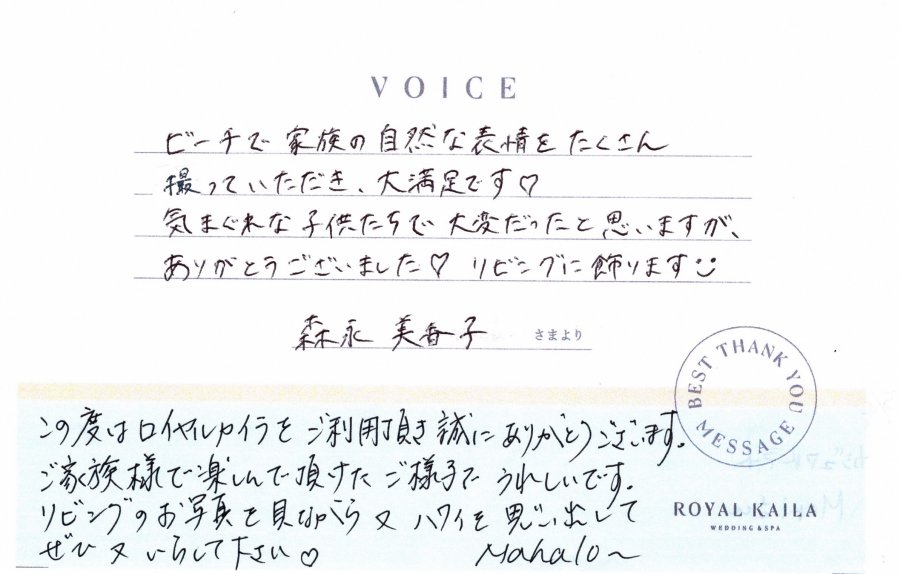 VOICE
ビーチで家族の自然な表情をたくさん
撮っていただき、大満足です♡
気まぐれな子供たちで大変だったと思いますが、
ありがとうございました♡ リビングに飾ります
森永 美香子 さまより
BEST THANK YOU MESSAGE
この度はロイヤルカイラをご利用頂き誠にありがとうございます。
ご家族様で楽しんで頂けたご様子で うれしいです。
リビングのお写真を見ながら又ハワイを思い出して
ROYAL KAILA
WEDDING & SPA
ぜひ又いらして下さい♡ Mahalo~